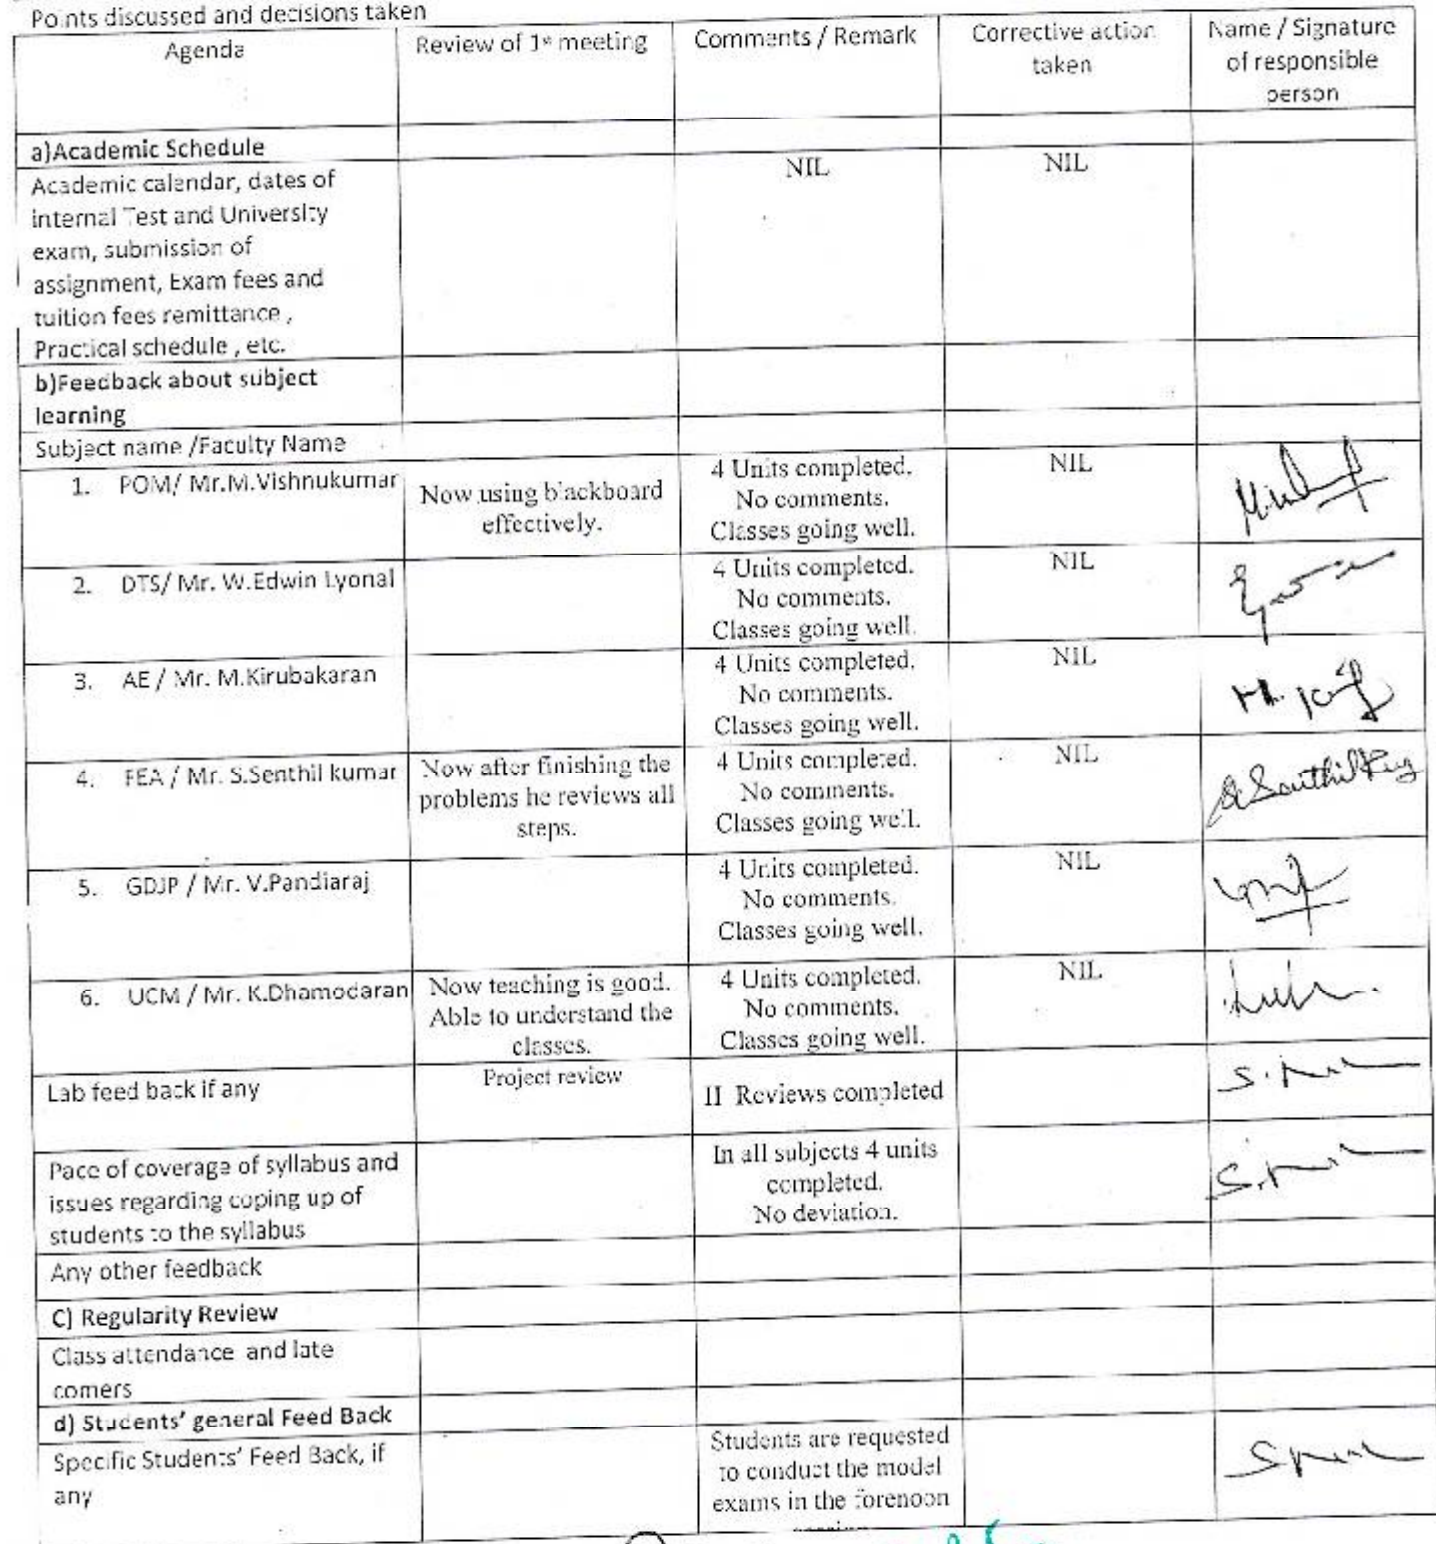 Points discussed and decisions taken
Agenda
Review of 1st meeting
Comments / Remark
Corrective action
taken
Name / Signature
of responsible
person
a)Academic Schedule
Academic calendar, dates of
internal Test and University
exam, submission of
assignment, Exam fees and
tuition fees remittance ,
Practical schedule , etc.
NIL
NIL
b)Feedback about subject
learning
Subject name /Faculty Name
1. POM/ Mr.M.Vishnukumar
Now using blackboard
effectively.
4 Units completed.
No comments.
Classes going well.
NIL
2. DTS/ Mr. W.Edwin Lyonal
4 Units completed.
No comments.
Classes going well.
NIL
3. AE / Mr. M.Kirubakaran
4 Units completed.
No comments.
Classes going well.
NIL
4. FEA / Mr. S.Senthil kumar
Now after finishing the
problems he reviews all
steps.
4 Units completed.
No comments.
Classes going well.
NIL
5. GDJP / Mr. V.Pandiaraj
4 Units completed.
No comments.
Classes going well.
NIL
6. UCM / Mr. K.Dhamodaran
Now teaching is good.
Able to understand the
classes.
4 Units completed.
No comments.
Classes going well.
NIL
Lab feed back if any
Project review
II Reviews completed
Pace of coverage of syllabus and
issues regarding coping up of
students to the syllabus
In all subjects 4 units
completed.
No deviation.
Any other feedback
C) Regularity Review
Class attendance and late
comers
d) Students' general Feed Back
Specific Students' Feed Back, if
any
Students are requested
to conduct the model
exams in the forenoon